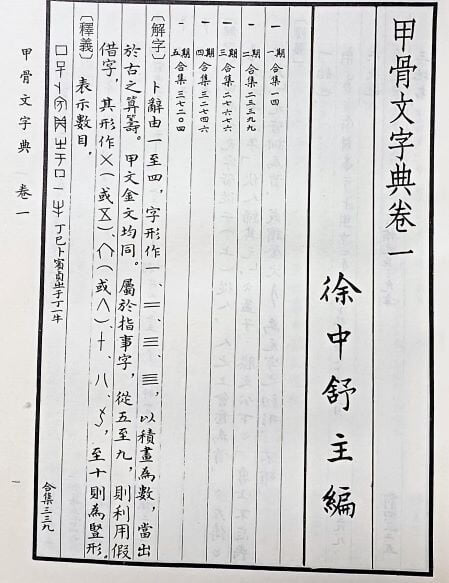 甲骨文字典卷一
徐中舒主編
一 一期 合集一四
一 二期 合集二三三九九
一 三期 合集二七六七六
一 四期 合集三二七四六
一 五期 合集三七二〇四
〔解字〕 卜辭由一至四,字形作一、二、三、亖,以積畫為數,當出
於古之算籌。甲文金文均同。屬於指事字,從五至九,則利用假
借字,其形作㐅(或𠄡)、介(或∧)、十、八、,至十則為豎形。
〔釋義〕 表示數目。
丁巳卜賓貞㞢于丁一牛 合集三三九
甲骨文字典 卷一
一